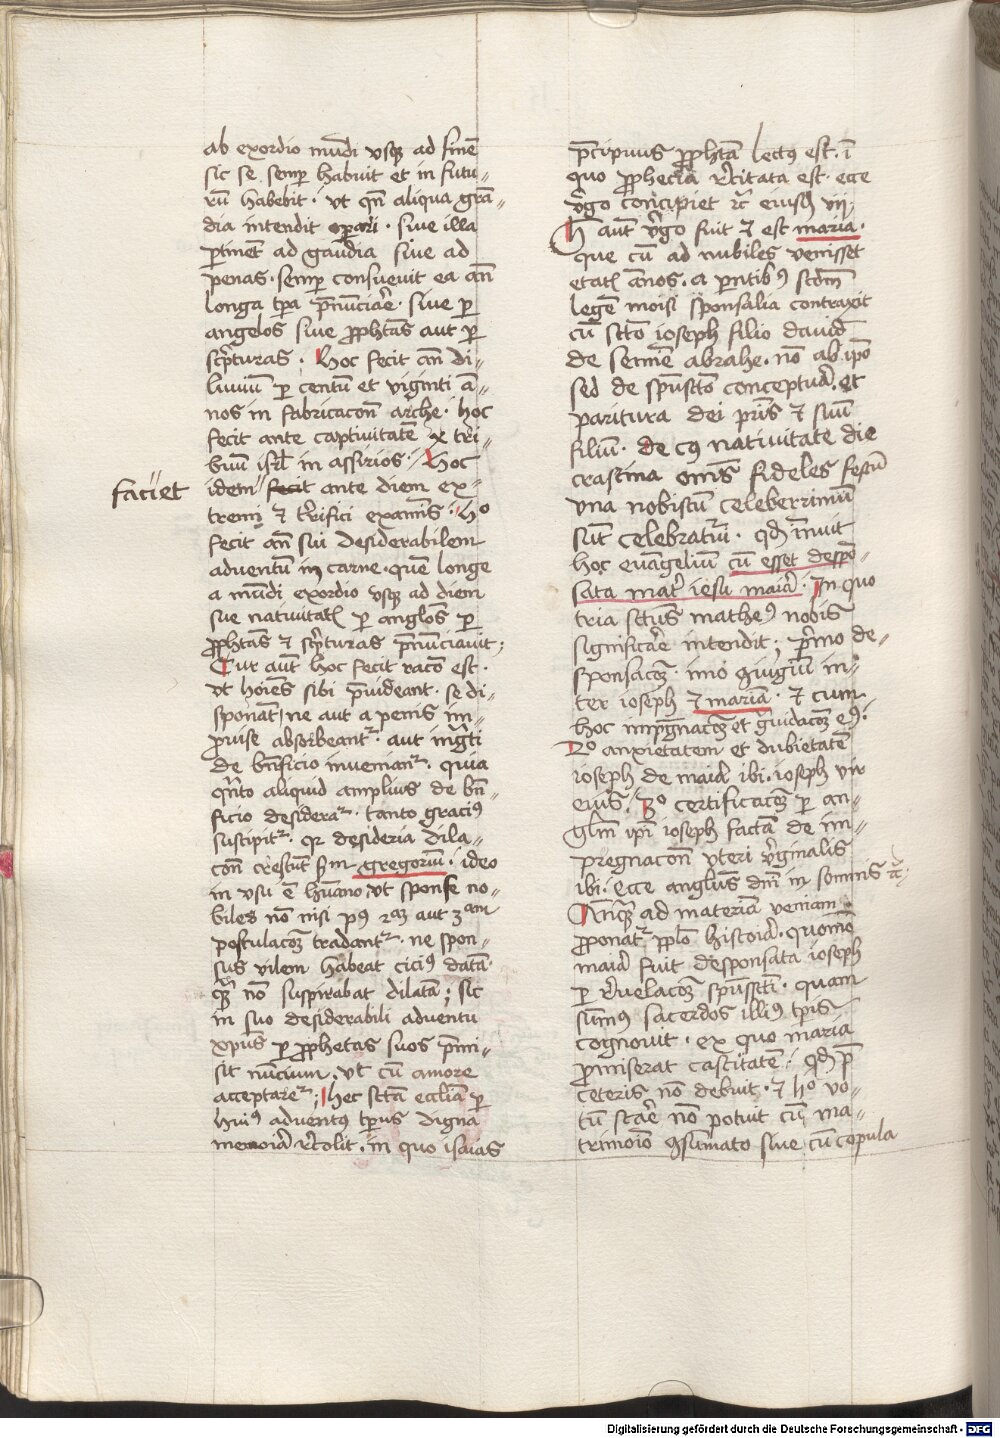 ab exordio mūdi vsqꝫ ad finē
sic se semꝑ habuit et in futu-
rū habebit · vt qn̄ aliqua grā-
dia intendit oꝑari · siue illa
ꝑtineāt ad gaudia siue ad
penas · semꝑ consueuit ea an̄
longa tꝑa p̄nūciare · siue ꝑ
angelos siue ꝓphetas aut ꝑ
scp̄turas · Hoc fecit an̄ di-
luuiū ꝑ centū et viginti ā-
nos in fabricacōe arche · hoc
fecit ante captiuitatē x tri-
buū isrl̄ in assirios · Hoc
faciet
idem fecit ante diem ex-
tremi ⁊ tr̄ifici examīs · Ho
fecit an̄ sui desiderabilem
aduentū in carne · quē longe
a mūdi exordio vsqꝫ ad diem
sue natiuitatꝭ ꝑ anglos ꝑ
ꝓphetas ⁊ scp̄turas p̄nūciauit ;
Cur aūt hoc fecit racō est ·
vt hoīes sibi p̄uideant · se di-
sponāt ne aut a penis im-
ꝓuise absorbeantᷣ · aut ingᷓti
de bn̄ficio inueniantᷣ · quia
qn̄to aliquid amplius de bn̄-
ficio desideraᷣ · tanto graciꝰ
suscipitᷣ · qꝛ desideria dila-
cōe crescūt scd̄m gregoriū · ideo
in vsu ē hūano vt sponse no-
biles nō nisi pꝰ 2am aut 3am
postulacōꝫ tradantᷣ · ne spon-
sus vilem habeat ciciꝰ datā ·
qᷓꝫ nō suspirabat dilatā ; sic
in suo desiderabili aduentu
xpūs ꝑ ꝓphetas suos p̄mi-
sit nūcium · vt cū amore
acceptareᷣ ; Hec sctā eccl̄ia ꝑ
huiꝰ aduentꝰ tꝑus digna
memoīa recolit · in quo isaias
p̄cipuus ꝓphetā lectꝰ est · ī
quo ꝓphecia recitata est · ecce
v̄go concipiet ⁊c̄ eiusdē vii ·
H̄ aūt v̄go fuit ⁊ est maria ·
que cū ad nubiles venisset
etatꝭ annos · a parentibꝰ scd̄m
legē moisi sponsalia contraxit
cū sctō ioseph filio dauid
de semīe abrahe · nō ab ip̄o
sed de sp̄usctō conceptura · et
paritura dei pr̄is ⁊ suū
filiū · de cꝰ natiuitate die
crastina om̄s fideles festū
vna nobiscū celeberrimū
sūt celebraturi · qd̄ innuit
hoc euāgeliū cū esset despō-
sata mat̄ iesu maīa · In quo
tria sctūs matheꝰ nobis
significare intendit ; p̄mo de-
sponsacōꝫ · imo ꝯiugiū in-
ter ioseph ⁊ mariā · ⁊ cum
hoc imp̄gnacōꝫ et grauidacōꝫ eꝰ ·
2o anxietatem et dubietatē
ioseph de maīa ibi · ioseph vir
eius · 3o certificacōꝫ ꝑ an-
glm̄ ip̄i ioseph factā de im-
pregnacōe vteri v̄ginalis
ibi · ecce anglus dn̄i in somnis ⁊c̄ ;
Anqᷓꝫ ad materiā veniam
ꝓponatᷣ pplō historīa · quomō
maīa fuit desponsata ioseph
ꝑ reuelacōꝫ sp̄usscti · quam
sūmꝰ sacerdos illiꝰ tꝑis
cognouit · ex quo maria
ꝓmiserat castitatē · qd̄ p̄
ceteris nō debuit · ⁊ ho vo-
tū stare nō potuit cū ma-
trimoīo ꝯsūmato siue cū copula
Digitalisierung gefördert durch die Deutsche Forschungsgemeinschaft - DFG